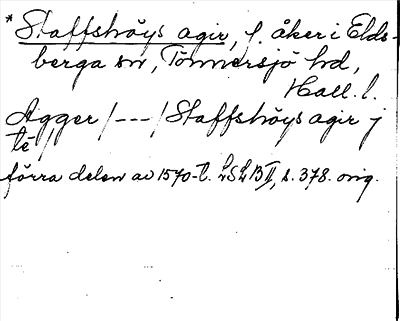 * Staffshöys agir, f. åker i Elds-
berga sn, Tönnersjö hd,
Hall. l.
Agger /---/ Staffshöys agir j
té /
förra delen av 1570-t. LSLB II, s. 378. orig.